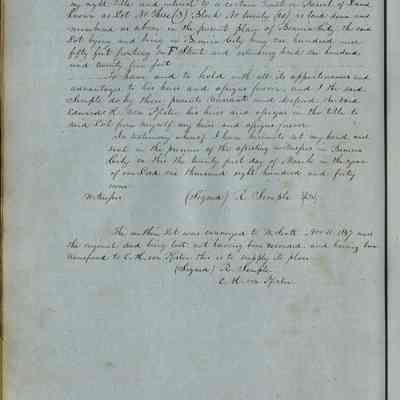 my right title and interest to a certain Tract or Parcel of Land
known as Lot No Three (3) Block No twenty (20) as laid down and
numbered as above in the present plan of Benicia City, the said
Lot lying and being in Benicia City being one hundred and
fifty feet fronting on F Street and extending back one hundred
and twenty five feet
To have and to hold with all its appurtenances and
advantages to his heirs and assigns forever, and I the said
Semple do by these presents warrant and defend the said
Edward H. Von Pfister his heirs and assigns in the title to
said Lot from myself my heirs and assigns forever
In testimony whereof I have hereunto set my hand and
seal in the presence of the attesting witnesses in Benicia
City on this the twenty first day of March in the year
of our Lord one thousand eight hundred and forty
nine
Witnesses (Signed) R. Semple
The within Lot was conveyed to Nov 11 1847 and
the original deed being lost not having been recorded and having been
transferred to E. H. von Pfister this is to supply its place
(Signed) R. Semple
E. H. von Pfister